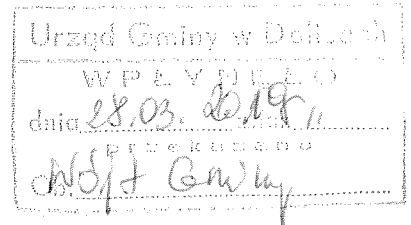 Urząd Gminy w Dolicach
WPŁYNĘŁO
dnia 28.03.2019
przekazano
Do Wójt Gminy